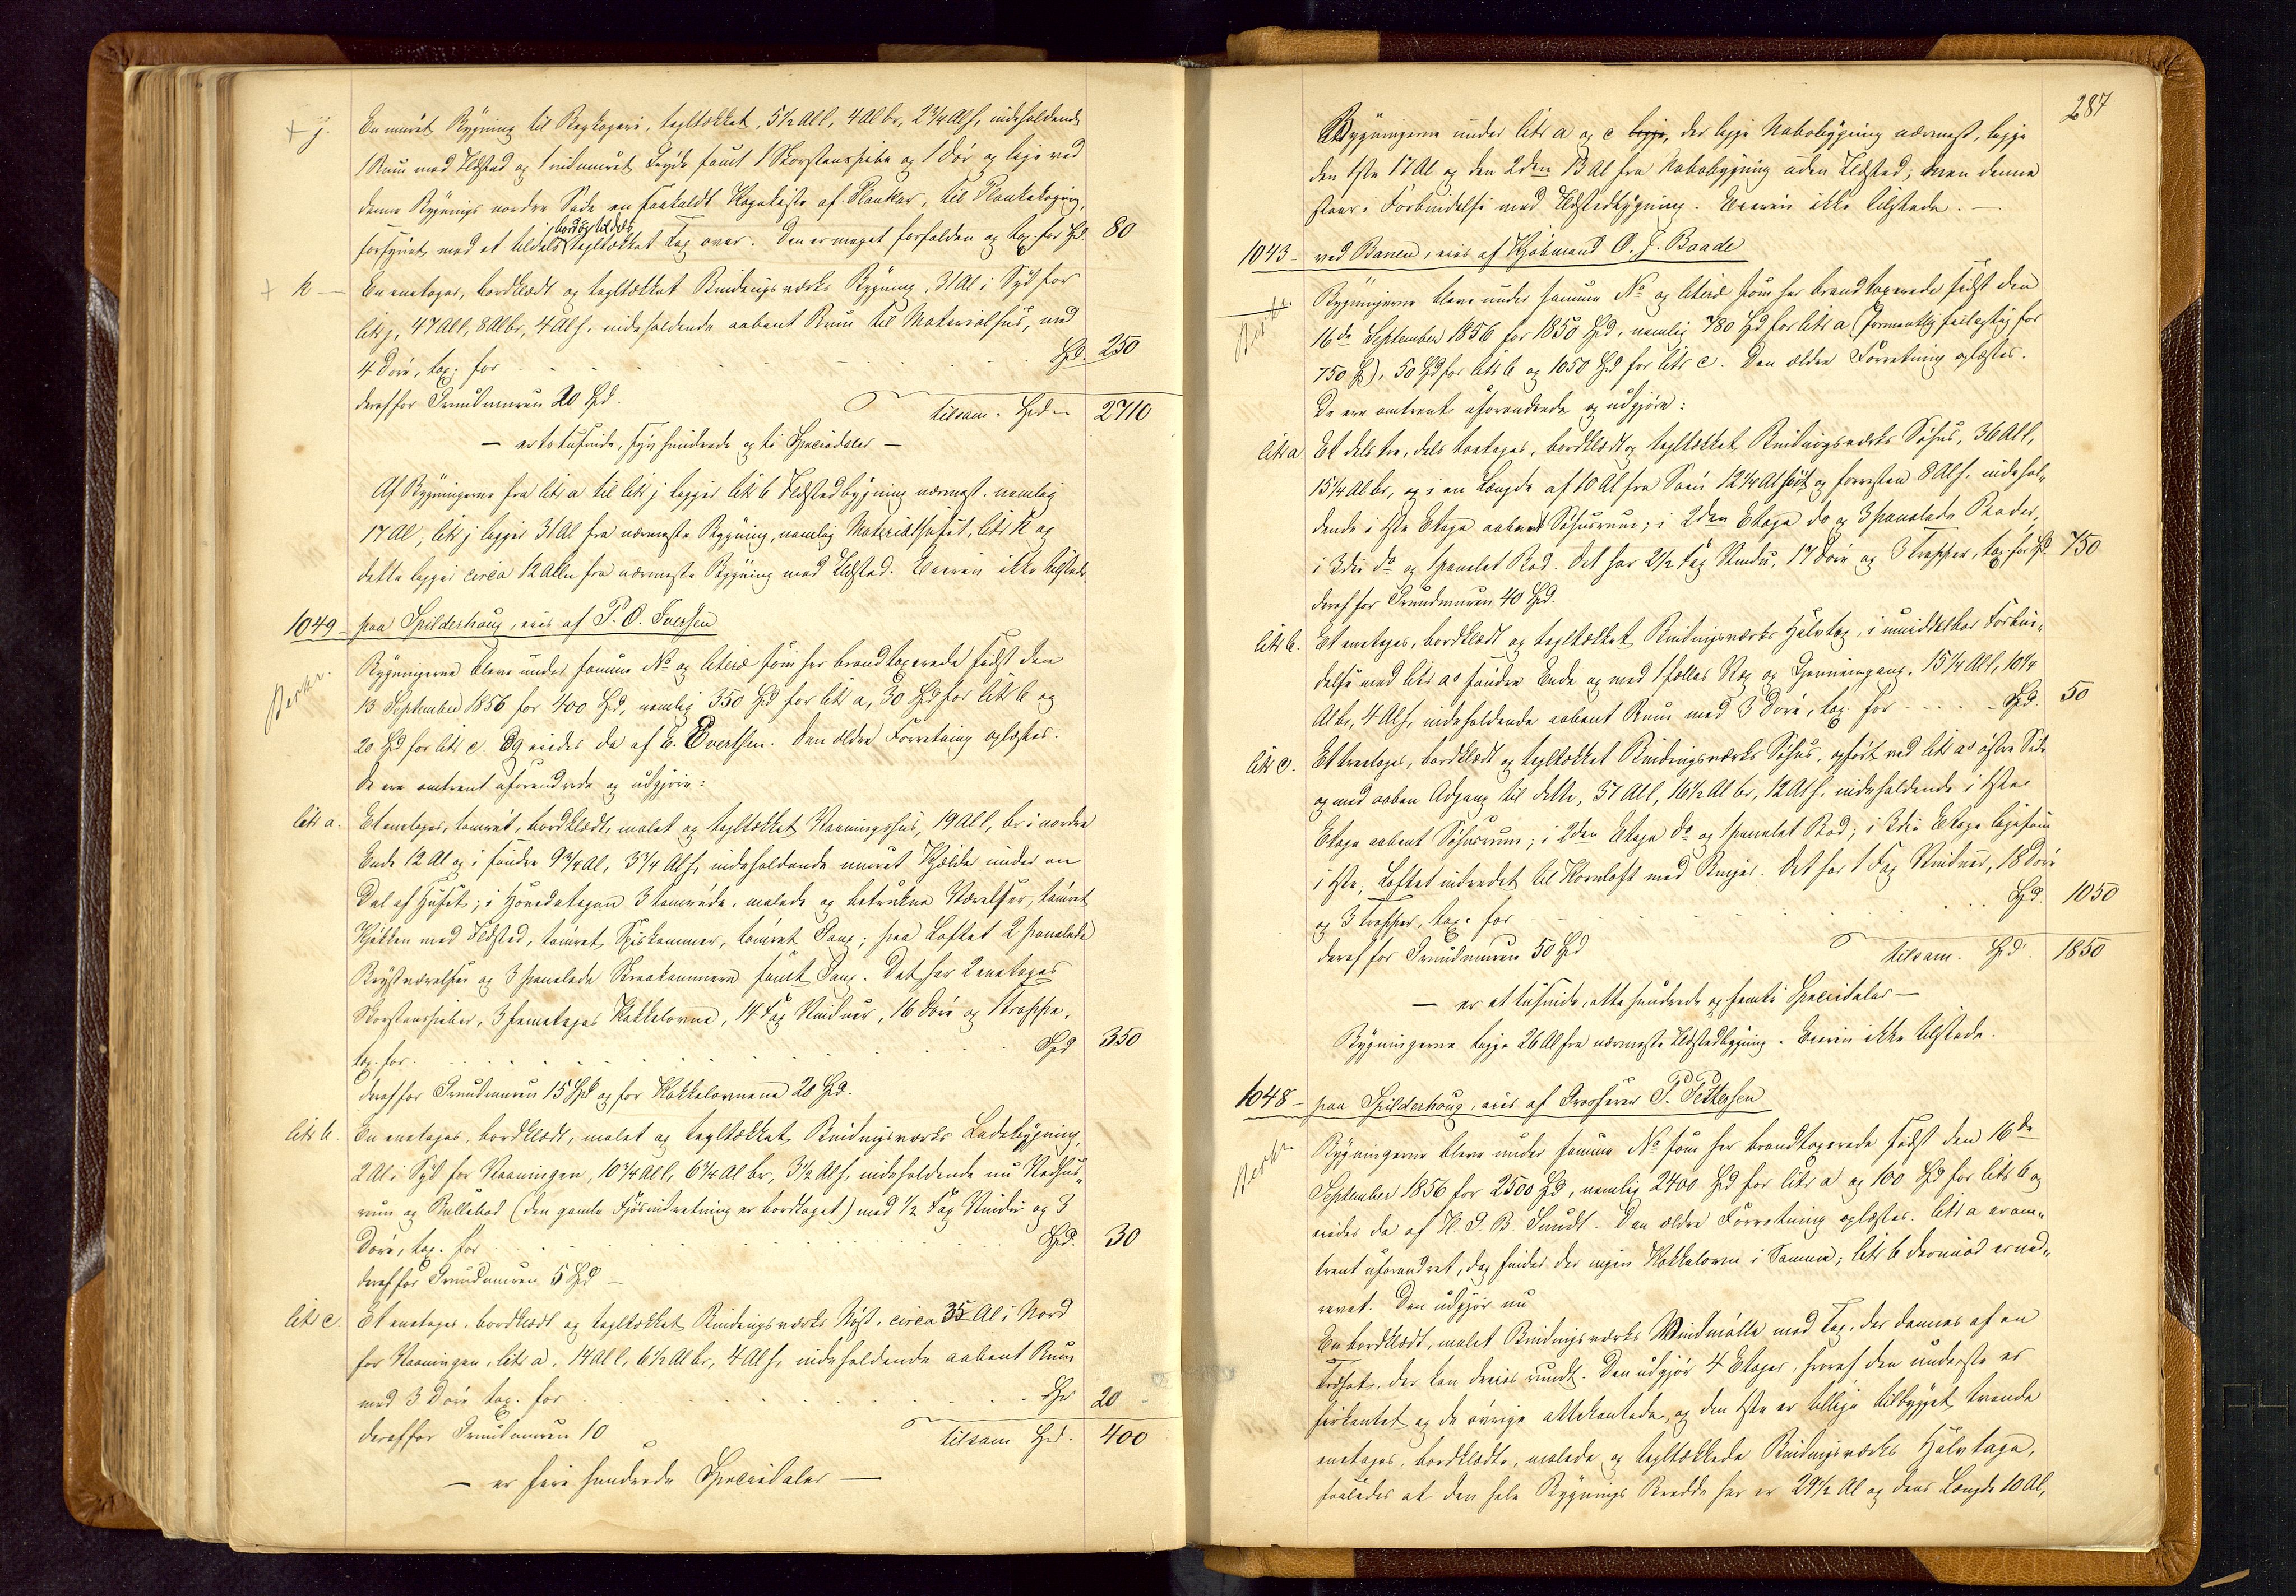 + j. En muret Bygning til Begkogeri, tagltækket, 5½ Al l, 4 Al br, 2¾ Al h, indeholdende
1 Rum med Ildsted og 1 indmuret Gryde samt 1 Skorstenspibe og 1 Dör og logi ved
denne Bygnings nordre Side en saakaldt Kogekiste af Planker, til Plankekogning,
bord og tildels
forsynet med et tildels tagltækket Tag over. Den er meget forfalden og tax. for Spd. 80
+ k — En enetages, bordklædt og tagltækket Bindingsværks Bygning, 31 Al i Syd for
litr j, 47 Al l, 8 Al br, 4 Al h. indeholdende aabent Rum til Materialhus, med
4 Döre, tax. for . . . . . . Spd. 250
deraf for Grundmuren 20 Spd. tilsam. Spd — 2710
— er to tusinde, syv hundrede og ti Speciedaler —
Af Bygningerne fra litr a til litr j ligger litr b Ildstedbygning nærmest, nemlig
17 Al, litr j ligger 31 Al fra nærmeste Bygning, nemlig Materialhuset, litr k og
dette ligger circa 12 Allen fra nærmeste Bygning med Ildsted. Eieren ikke tilstede.
1049 — paa Spilderhaug, eies af P. O. Iversen
Bygningerne bleve under samme No og literæ som her brandtaxerede sidst den
13 September 1856 for 400 Spd, nemlig 350 Spd for litr a, 30 Spd for litr b og
20 Spd for litr c. Og eiedes da af E. Evertsen. Den ældre Forretning oplæstes.
De ere omtrent uforandrede og udgjöre:
litr a. Et enetages, tömret, bordklædt, malet og tagltækket Vaaningshus, 19 Al l, br i nordre
Ende 12 Al og i söndre 9¾ Al, 3¾ Al h, indeholdende muret Kjælder under en
Del af Huset; i Hovedetagen 3 tömrede, malede og betrukne Værelser, tömret
Kjökken med Ildsted, tömret Spiskammer, tömret Gang; paa Loftet 2 panelede
Kvistværelser og 3 panelede Skraakammere samt Gang. Det har 2 enetages
Skorstenspiber, 3 femetages Kakkelovne, 14 Fag Vinduer, 16 Döre og 1 Trappe,
tax. for . . . . . . Spd 350
deraf for Grundmuren 15 Spd og for Kakkelovnene 20 Spd.
litr b. En enetages, bordklædt, malet og tagltækket Bindingsværks Ladebygning,
2 Al i Syd for Vaaningen, 10¾ Al l, 6¾ Al br, 3½ Al h, indeholdende nu Vedhus-
rum og Rullebod (den gamle Fjösindretning er borttaget) med ½ Fag Vindu og 3
Döre, tax. for . . . . . . Spd. 30
deraf for Grundmuren 5 Spd —
litr c. Et enetages, bordklædt og tagltækket Bindingsværks Nöst, circa 35 Al i Nord
for Vaaningen, litr a, 14 Al l, 6½ Al br, 4 Al h, indeholdende aabent Rum
med 3 Döre tax. for . . . . . . Spd 20
deraf for Grundmuren 10 tilsam Spd. 400
— er fire hundrede Speciedaler —
287
Bygningerne under litr a og c ligge, der ligge Nabobygning nærmest, ligge
den 1ste 17 Al og den 2den 13 Al fra Nabobygning uden Ildsted; men denne
staar i Forbindelse med Ildstedbygning. Eieren ikke tilstede. —
1043 — ved Banen, eies af Kjöbmand O. J. Baade
Bygningerne bleve under samme No og literæ som her brandtaxerede sidst den
16de September 1856 for 1850 Spd, nemlig 780 Spd for litr a (formentlig feilagtig for
750 Sp), 50 Spd for litr b og 1050 Spd for litr c. Den ældre Forretning oplæstes.
De ere omtrent uforandrede og udgjöre:
litr a Et dels tre, dels toetages, bordklædt og tagltækket Bindingsværks Söhus, 36 Al l,
15¼ Al br, og i en Længde af 10 Al fra Söen 12¼ Al höit og forresten 8 Al h. indehol-
dende i 1ste Etage aabent Söhusrum; i 2den Etage do og 3 panelede Boder,
i 3die do og 1 panelet Bod. Det har 2½ Fag Vindu, 17 Döre og 3 Trapper, tax. for Spd. 750
deraf for Grundmuren 40 Spd.
litr b. Et enetages, bordklædt og tagltækket Bindingsværks Halvtag, i umiddelbar Forbin-
delse med litr a's söndre Ende og med 1 fælles Væg og Gjennemgang, 15¼ Al l, 10¼
Al br, 4 Al h, indeholdende aabent Rum med 3 Döre, tax. for . . . . Spd. 50
litr c. Et treetages, bordklædt og tagltækket Bindingsværks Söhus, opfört ved litr a's östre Side
og med aaben Adgang til dette, 37 Al l, 16½ Al br, 12 Al h. indeholdende i 1ste
Etage aabent Söhusrum; i 2den Etage do og 1 panelet Bod; i 3die Etage ligesom
i 1ste; Loftet indredet til Kornloft med Binger. Det har 1 Fag Vinduer, 18 Döre
og 3 Trapper, tax. for . . . . . . Spd. 1050
deraf for Grundmuren 50 Spd tilsam. Spd. 1850
— er et tusinde, otte hundrede og femti Speciedaler —
Bygningerne ligge 26 Al fra nærmeste Ildstedbygning. Eieren ikke tilstede.
1048 — paa Spilderhaug, eies af Grosserer P. Pettersen
Bygningerne bleve under samme No som her brandtaxerede sidst den 16de
September 1856 for 2500 Spd, nemlig 2400 Spd for litr a og 100 Spd for litr b og
eiedes da af H. P. B. Sundt. Den ældre Forretning oplæstes. litr a er om-
trent uforandret, dog findes der ingen Kakkelovn i Samme; litr b derimod er ned-
revet. Den udgjör nu
En bordklædt, malet Bindingsværks Windmölle med Tag, der dannes af en
Trehat, der kan dreies rundt. Den udgjör 4 Etager, hvoraf den underste er
firkantet og de övrige ottekantede, og den 1ste er tillige tilbygget trende
enetages, bordklædte, malede og tagltækkede Bindingsværks Halvtage,
saaledes at den hele Bygnings Bredde her er 29½ Al og dens Længde 10 Al,